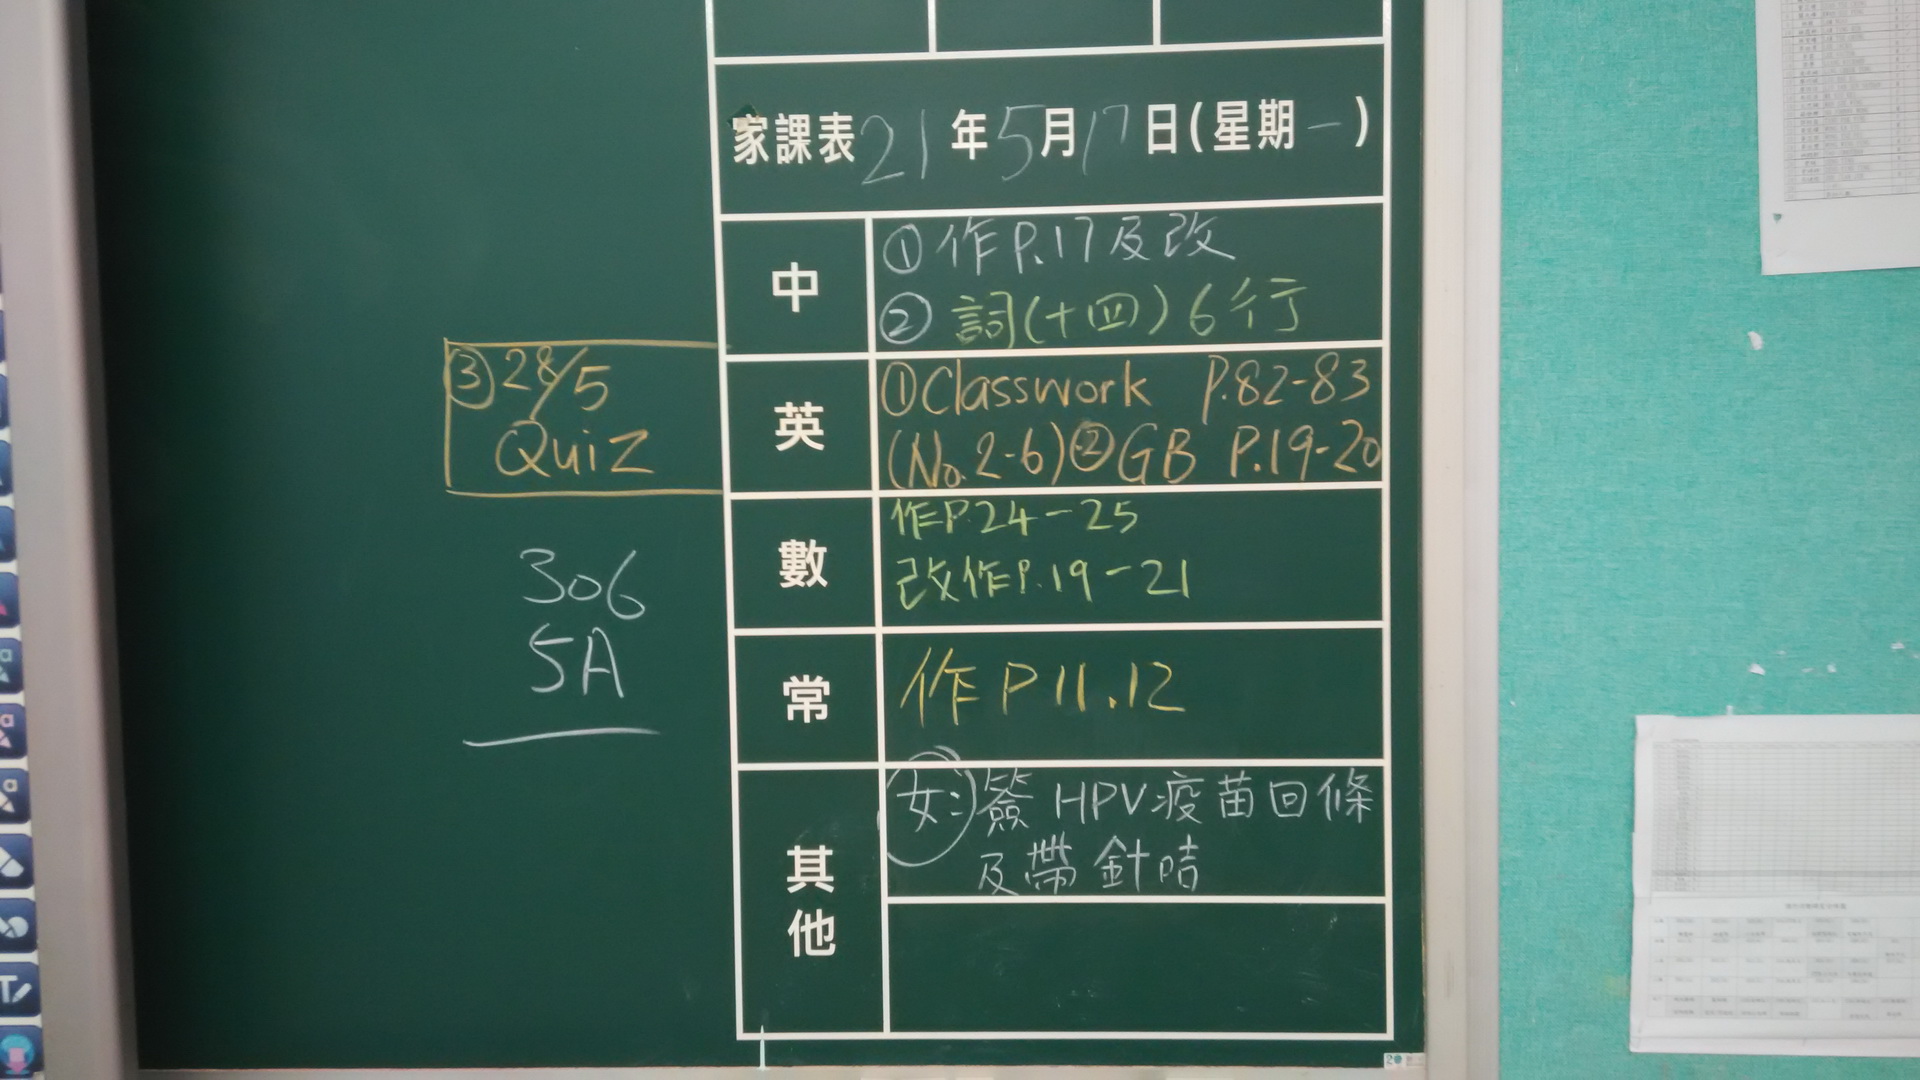 家課表 21 年 5 月 17 日(星期一)
中
①作P.17及改
②詞(十四)6行
英
①Classwork P.82-83
(No.2-6)②GB P.19-20
③28/5
Quiz
數
作P.24-25
改作P.19-21
306
5A
常
作P11.12
其他
女:簽HPV疫苗回條
及帶針咭